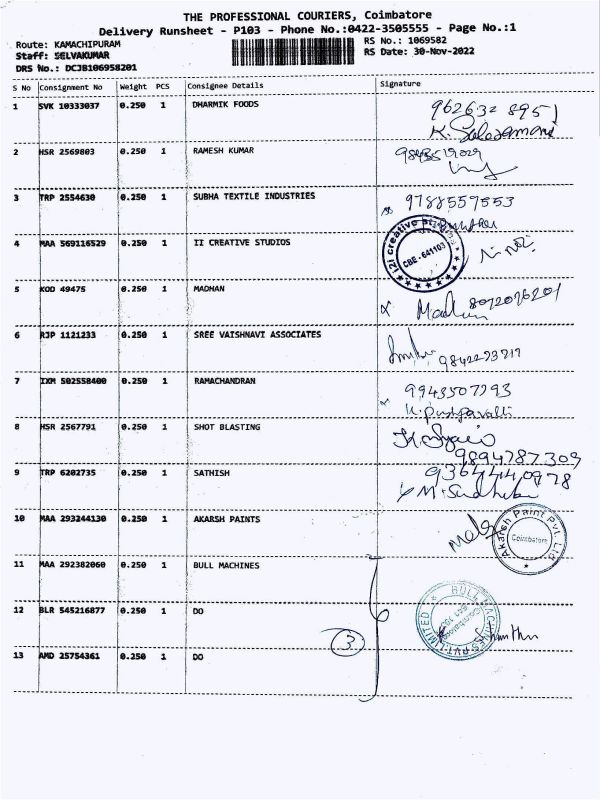 THE PROFESSIONAL COURIERS, Coimbatore
Delivery Runsheet - P103 - Phone No.:0422-3505555 - Page No.:1
Route: KAMACHIPURAM RS No.: 1069582
Staff: SELVAKUMAR RS Date: 30-Nov-2022
DRS No.: DCJB106958201
S No Consignment No Weight PCS Consignee Details Signature
1 SVK 10333037 0.250 1 DHARMIK FOODS 962632 8951
2 HSR 2569803 0.250 1 RAMESH KUMAR
3 TRP 2554630 0.250 1 SUBHA TEXTILE INDUSTRIES 9788557553
4 MAA 569116529 0.250 1 II CREATIVE STUDIOS i2i creative studios CBE - 641103
5 KOD 49475 0.250 1 MADHAN Madhan 8072076201
6 RJP 1121233 0.250 1 SREE VAISHNAVI ASSOCIATES
7 IXM 502558400 0.250 1 RAMACHANDRAN 9943507293
K. Pushpavalli
8 HSR 2567791 0.250 1 SHOT BLASTING
9894787309
9 TRP 6202735 0.250 1 SATHISH 9364440978
10 MAA 293244130 0.250 1 AKARSH PAINTS Akarsh Paint Pvt. Ltd Coimbatore
11 MAA 292382060 0.250 1 BULL MACHINES
12 BLR 545216877 0.250 1 DO BULL MACHINES PVT. LIMITED Coimbatore
3
13 AMD 25754361 0.250 1 DO